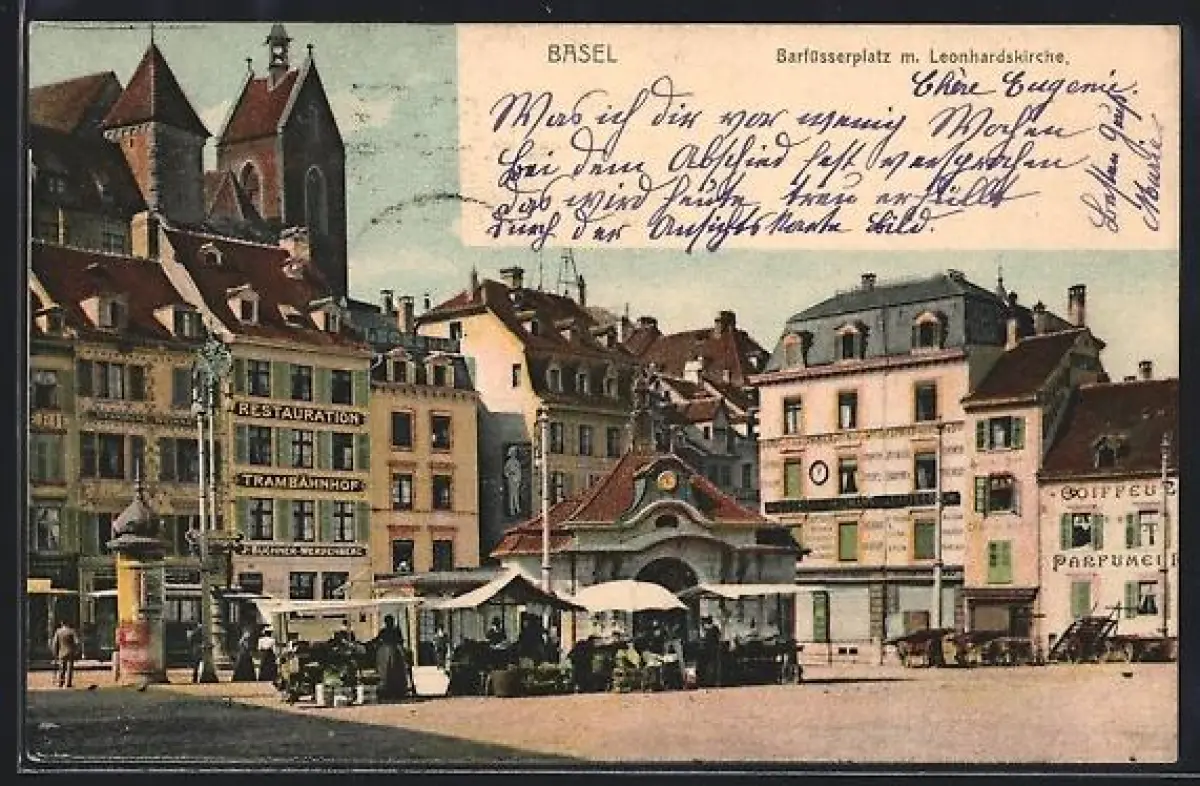 BASEL
Barfüsserplatz m. Leonhardskirche.
Chère Eugenie.
Was ich dir vor wenig Wochen
bei dem Abschied fest versprochen
das wird heute treu erfüllt
durch der Ansichtskarte Bild.
Besten Gruß
RESTAURATION
TRAMBAHNHOF
COIFFEUR
PARFUMEU